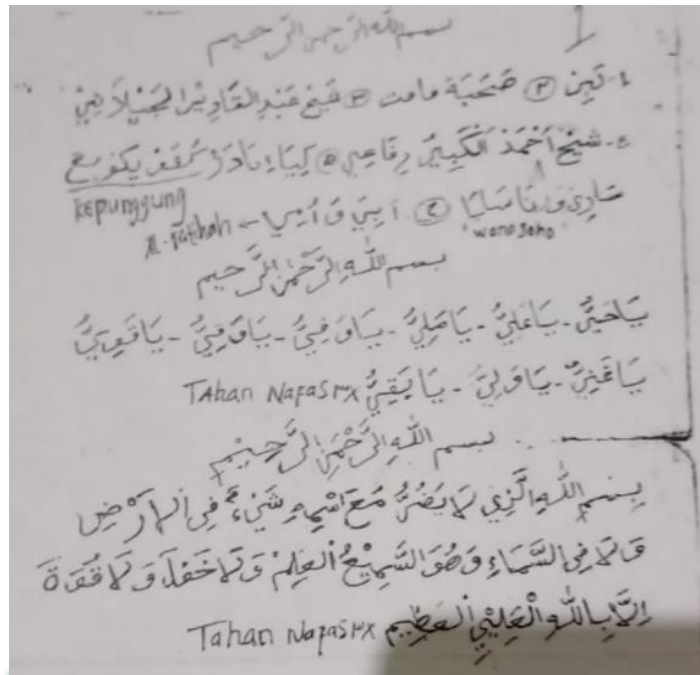 بسم الله الرحمن الرحيم 1
١- نبين ٣ صحبة مامت ٣ شيخ عبد القادير الجيلاني
٤- شيخ أحمد الكبير رفاعي ٥ كياء نادر
kepunggung
٢ أبي و أمي – Al-Fatihah "wono soho"
بسم الله الرحمن الرحيم
يَاحَيُّ - يَاعَلِيُّ - يَامَلِيُّ - يَاوَفِيُّ - يَاوَفِيُّ - يَاقَوِيُّ
يَاغَنِيُّ - يَاوَلِيُّ - يَابَقِيُّ TAhan Nafas ٣X
بسم اللهِ الرَّحْمَنِ الرَّحِيْمِ
بِسْمِ اللهِ الَّزِي لَا يَضُرُّ مَعَ اسْمِهِ شَيْءٌ فِي الارْضِ
وَلَا فِي السَّمَاءِ وَهُوَ السَّمِيْعُ الْعَلِمْ وَلَا حَوْلَ وَلَا قُوَّةَ
اِلَّا بِاللهِ الْعَلِيِّ الْعَظِيمِ Tahan Nafas ٣X